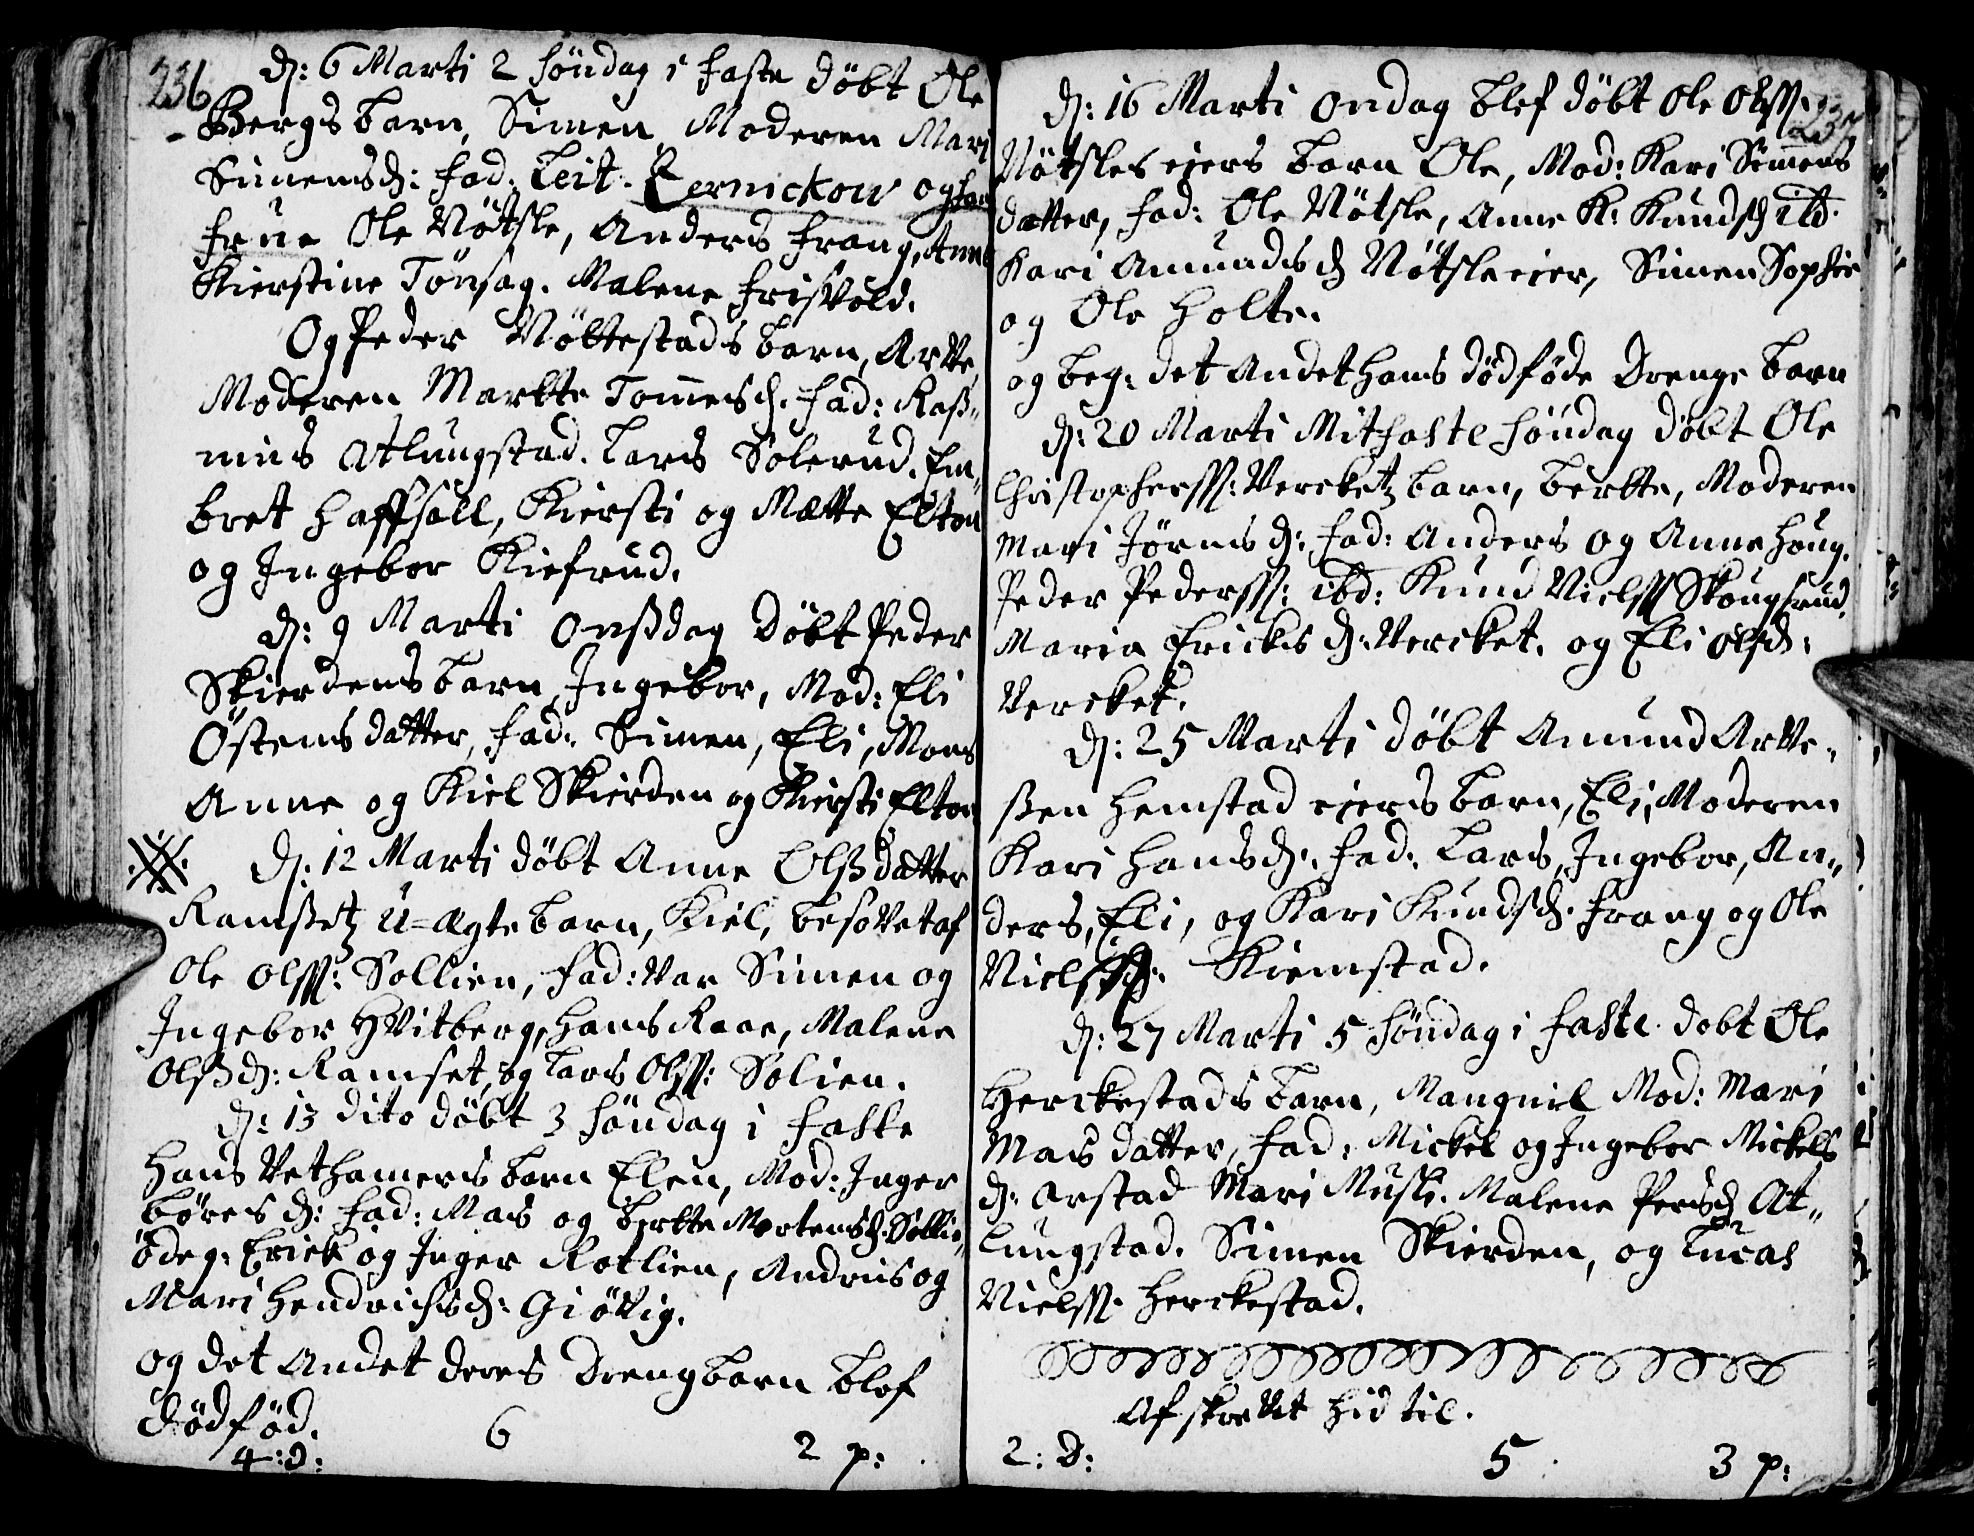 236
D: 6 Marti 2 Söndag i faste döbt Ole
Bergs barn, Simen, Moderen Mari
Simensd: fad. Leit. Zernickow og hans
frue Ole Nötsle, Anders frang, Anne
Kierstine Tönsag. Malene frisvold.
Og Peder Nöttestads barn, Arve,
Moderen Martte Tomesd. fad: Raß-
mus Atlungstad. Lars Solerud. Em-
bret Haffsöll, Kiersti og Mætte Elton
og Ingebor Kiefrud.
D: 9 Marti Onßdag Döbt Peder
Skierdens barn, Ingebor, Mod: Eli
Östensdatter, fad. Simen, Eli, Mons
Anne og Kiel Skierden og Kiersti Elton
D: 12 Marti döbt Anne Olßdatter
Ramsetz u-ægte barn, Kiel, besovet af
Ole Olss: Sollien, fad: var Simen og
Ingebor Hvitberg, Hans Raae, Malene
Olßd: Ramset, og Lars Olss: Solien.
D: 13 dito döbt 3 Söndag i faste
Hans Vethamers barn Elen, Mod: Inger
Böresd: fad: Mas og Bertte Mortensd: Sollie
ödeg: Erick og Inger Rotlien, Andreas og
Mari Hendrichsd: Giövig.
og det Andet deres Drengbarn blef
Dödföd.
4: D: 6 2 p:
237
D: 16 Marti Ondag blef döbt Ole Olss:
Nötsles eiers barn Ole, Mod: Kari Simens
datter, fad: Ole Nötsle, Anne K: Knudsd ibd.
Kari Amundsd Nötsleeier, Simen Sophie
og Ole Holte.
og beg: det Andet hans dödföde Drenge barn
D: 20 Marti Mitfaste Söndag döbt Ole
Christopherss: Vercketz barn, Bertte, Moderen
Mari Jörnsd: fad: Anders og Anne Houg.
Peder Pederss: ibd: Knud Nielss Skougsrud.
Maria Ericksd: Vercket. og Eli Olsd:
Vercket.
D: 25 Marti döbt Amund Arve-
ßen Hemstad eiers barn, Eli, Moderen
Kari Hansd. fad. Lars, Ingebor, An-
ders, Eli, og Kari Knudsd. frang og Ole
Nielss. Kiemstad.
D: 27 Marti 5 Söndag i faste. dobt Ole
Herckestads barn, Mangnil Mod: Mari
Mas datter, fad: Mickel og Ingebor Mickels
d. Arstad Mari Musli. Malene Persd At-
lungstad. Simen Skierden, og Lucas
Nielss. Herckestad.
Afskrevet hid til.
2: D: 5 3 p: